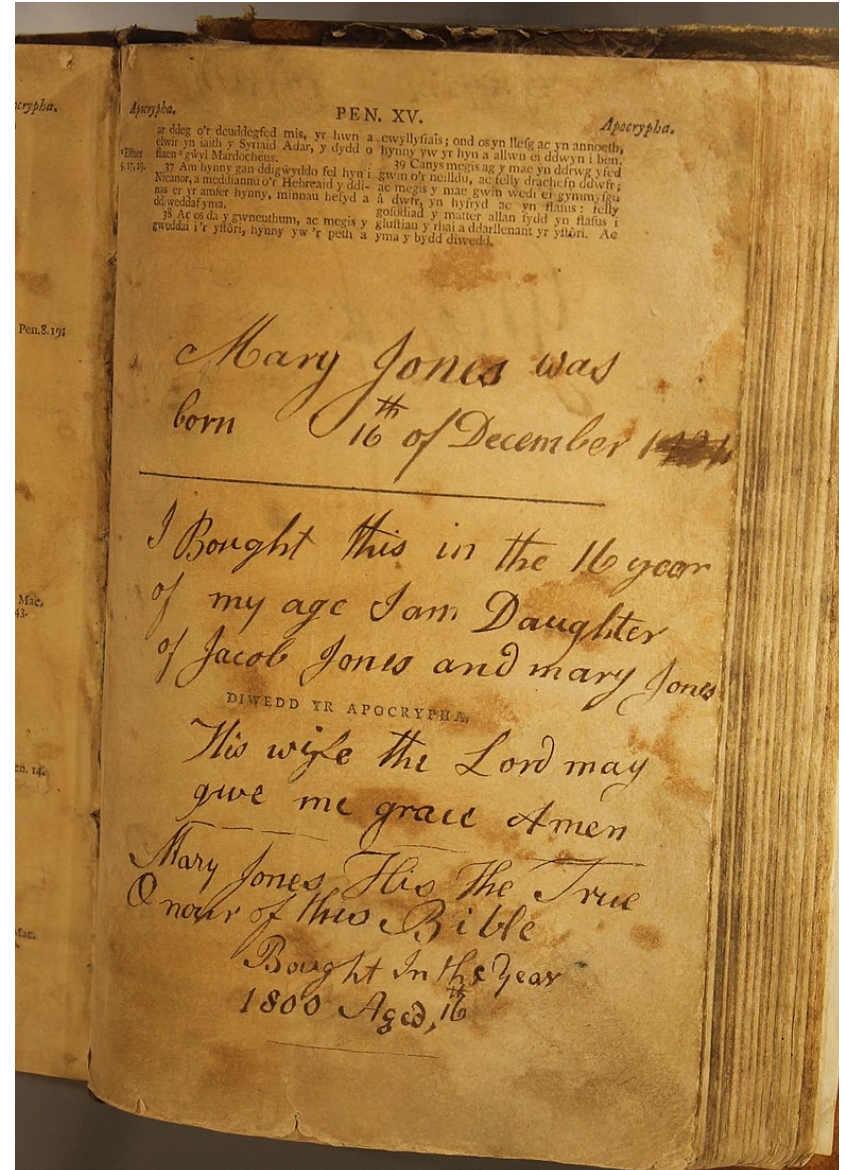 Apocrypha.
PEN. XV.
Apocrypha.
ar ddeg o'r deuddegfed mis, yr hwn a
elwir yn iaith y Syriaid Adar, y dydd o
flaen gwyl Mardocheus.
37 Am hynny gan ddigwyddo fel hyn i
Nicanor, a meddiannu o'r Hebreaid y ddi-
nas er yr amser hynny, minnau hefyd a
ddiweddaf yma.
38 Ac os da y gwneuthum, ac megis y
gweddai i'r ystori, hynny yw 'r peth a
ewyllysiais; ond os yn llesg ac yn annoeth,
hynny yw yr hyn a allwn ei ddwyn i ben.
39 Canys megis ag y mae yn ddrwg yfed
gwin o'r neilldu, ac felly drachefn ddwfr;
ac megis y mae gwin wedi ei gymmysgu
â dwfr, yn hyfryd ac yn flasus: felly
gosodiad y matter allan sydd yn flasus i
glustiau y rhai a ddarllenant yr ystori. Ac
yma y bydd diwedd.
Esther
Pen.8.19;
Mac.
43.
Mary Jones was
born 16th of December
I Bought this in the 16 year
of my age I am Daughter
of Jacob Jones and mary Jones
DIWEDD YR APOCRYPHA.
His wife the Lord may
give me grace Amen
Mary Jones His the True
Onour of this Bible
Bought In the Year
1800 Aged, 16th